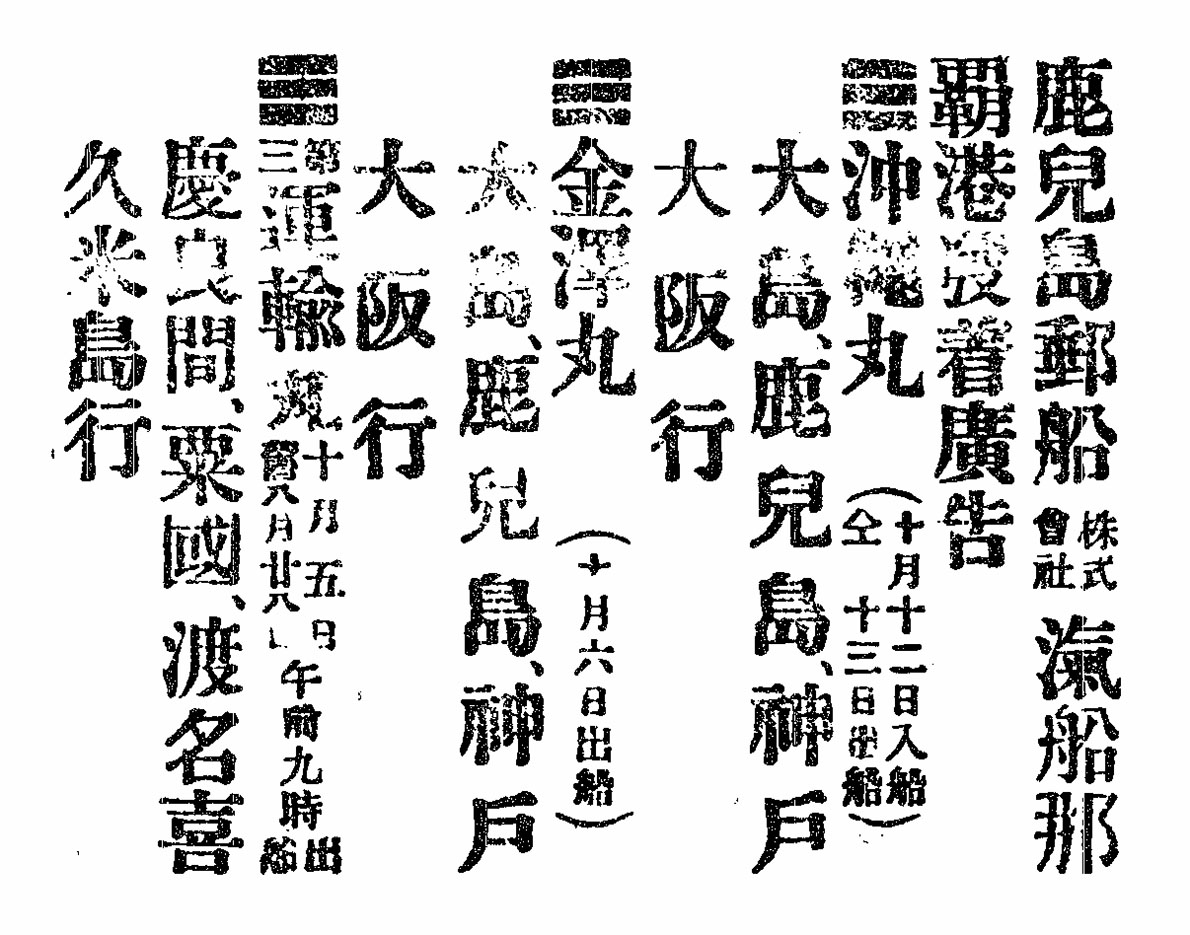 鹿兒島郵船株式會社滊船那
覇港發着廣告
☰沖縄丸(十月十二日入船
仝 十三日出船)
大島、鹿兒島、神戸
大阪行
☰金澤丸(十月六日出船)
大島、鹿兒島、神戸
大阪行
☰第三運輸丸十月五日
舊八月廿八日午前九時出船
慶良間、粟國、渡名喜
久米島行